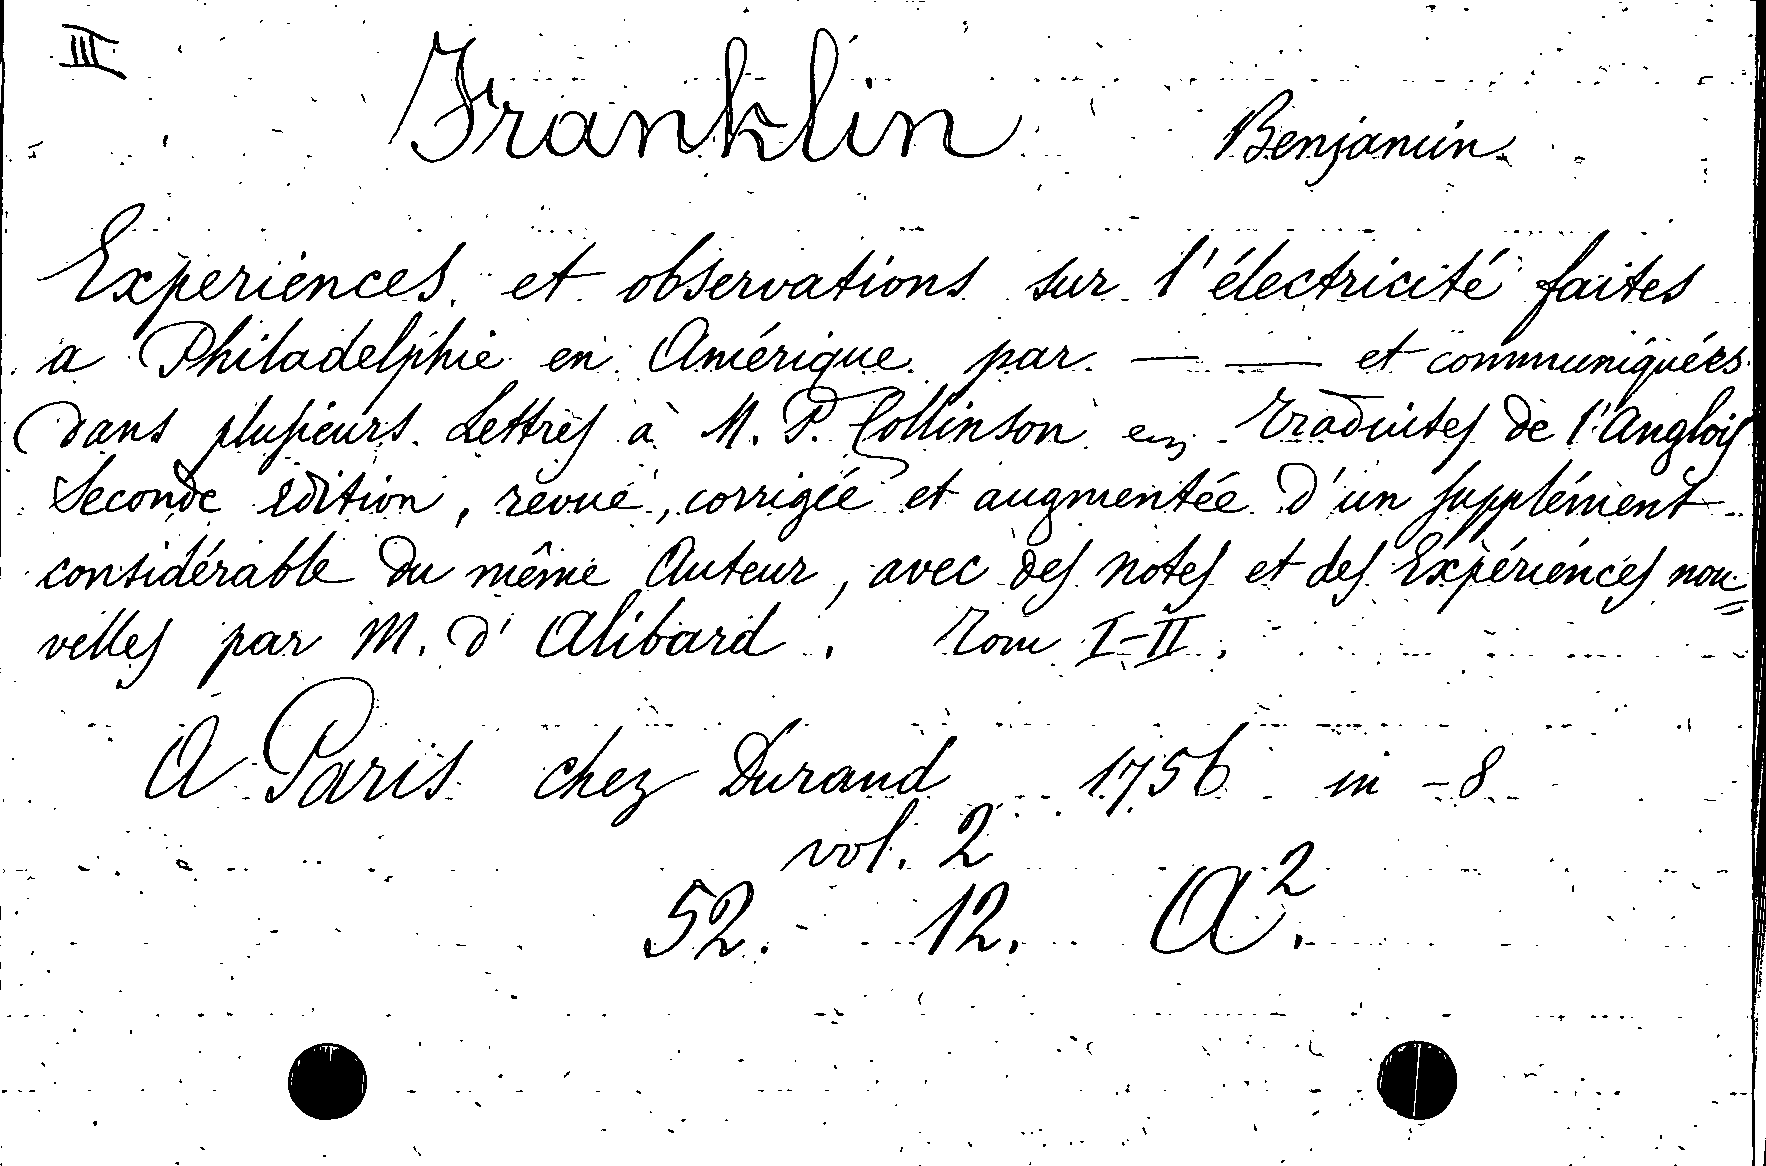 III
Franklin Benjamin.
Experiences et observations sur l'électricité faites
a Philadelphie en Amérique par — — et communiquées
dans plusieurs Lettres à M. P. Collinson traduites de l'Anglois
Seconde edition, revue, corrigée et augmentée d'un supplément
considérable du même Auteur, avec des notes et des Expériences nou=
velles par M. d'Alibard. Tom I-II.
A Paris chez Durand 1756 in-8
vol. 2
52. 12. A².